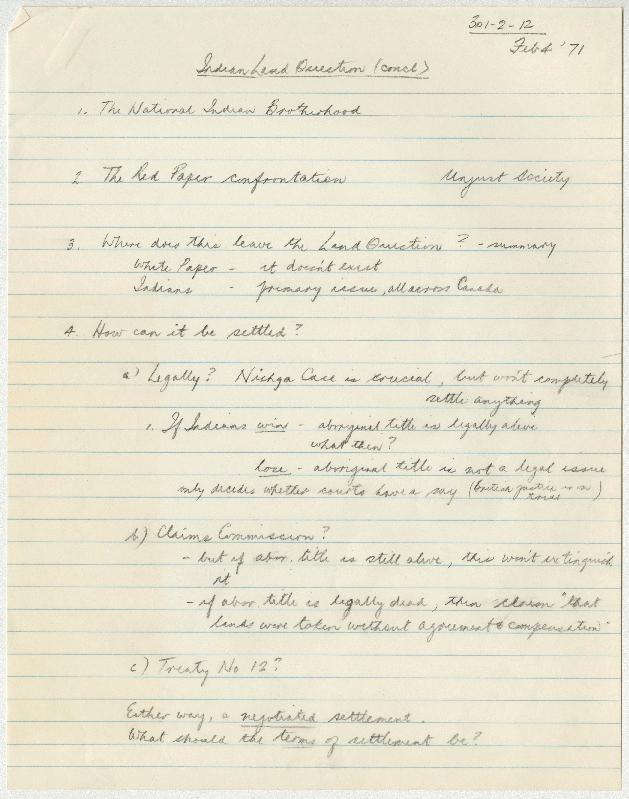 301-2-12
Feb 4 '71
Indian Land Question (concl)
1. The National Indian Brotherhood
2 The Red Paper confrontation Unjust Society
3. Where does this leave the Land Question? - summary
White Paper - it doesn't exist
Indians - primary issue, all across Canada
4. How can it be settled?
a) Legally? Nishga Case is crucial, but won't completely
settle anything
1. If Indians win - aboriginal title is legally alive
what then?
lose - aboriginal title is not a legal issue
only decides whether courts have a say (British justice is on
trial)
b) Claims Commission?
- but if abor. title is still alive, this won't extinguish
it
- if abor. title is legally dead, then claim "that
lands were taken without agreement & compensation"
c) Treaty No 12?
Either way, a negotiated settlement.
What should the terms of settlement be?